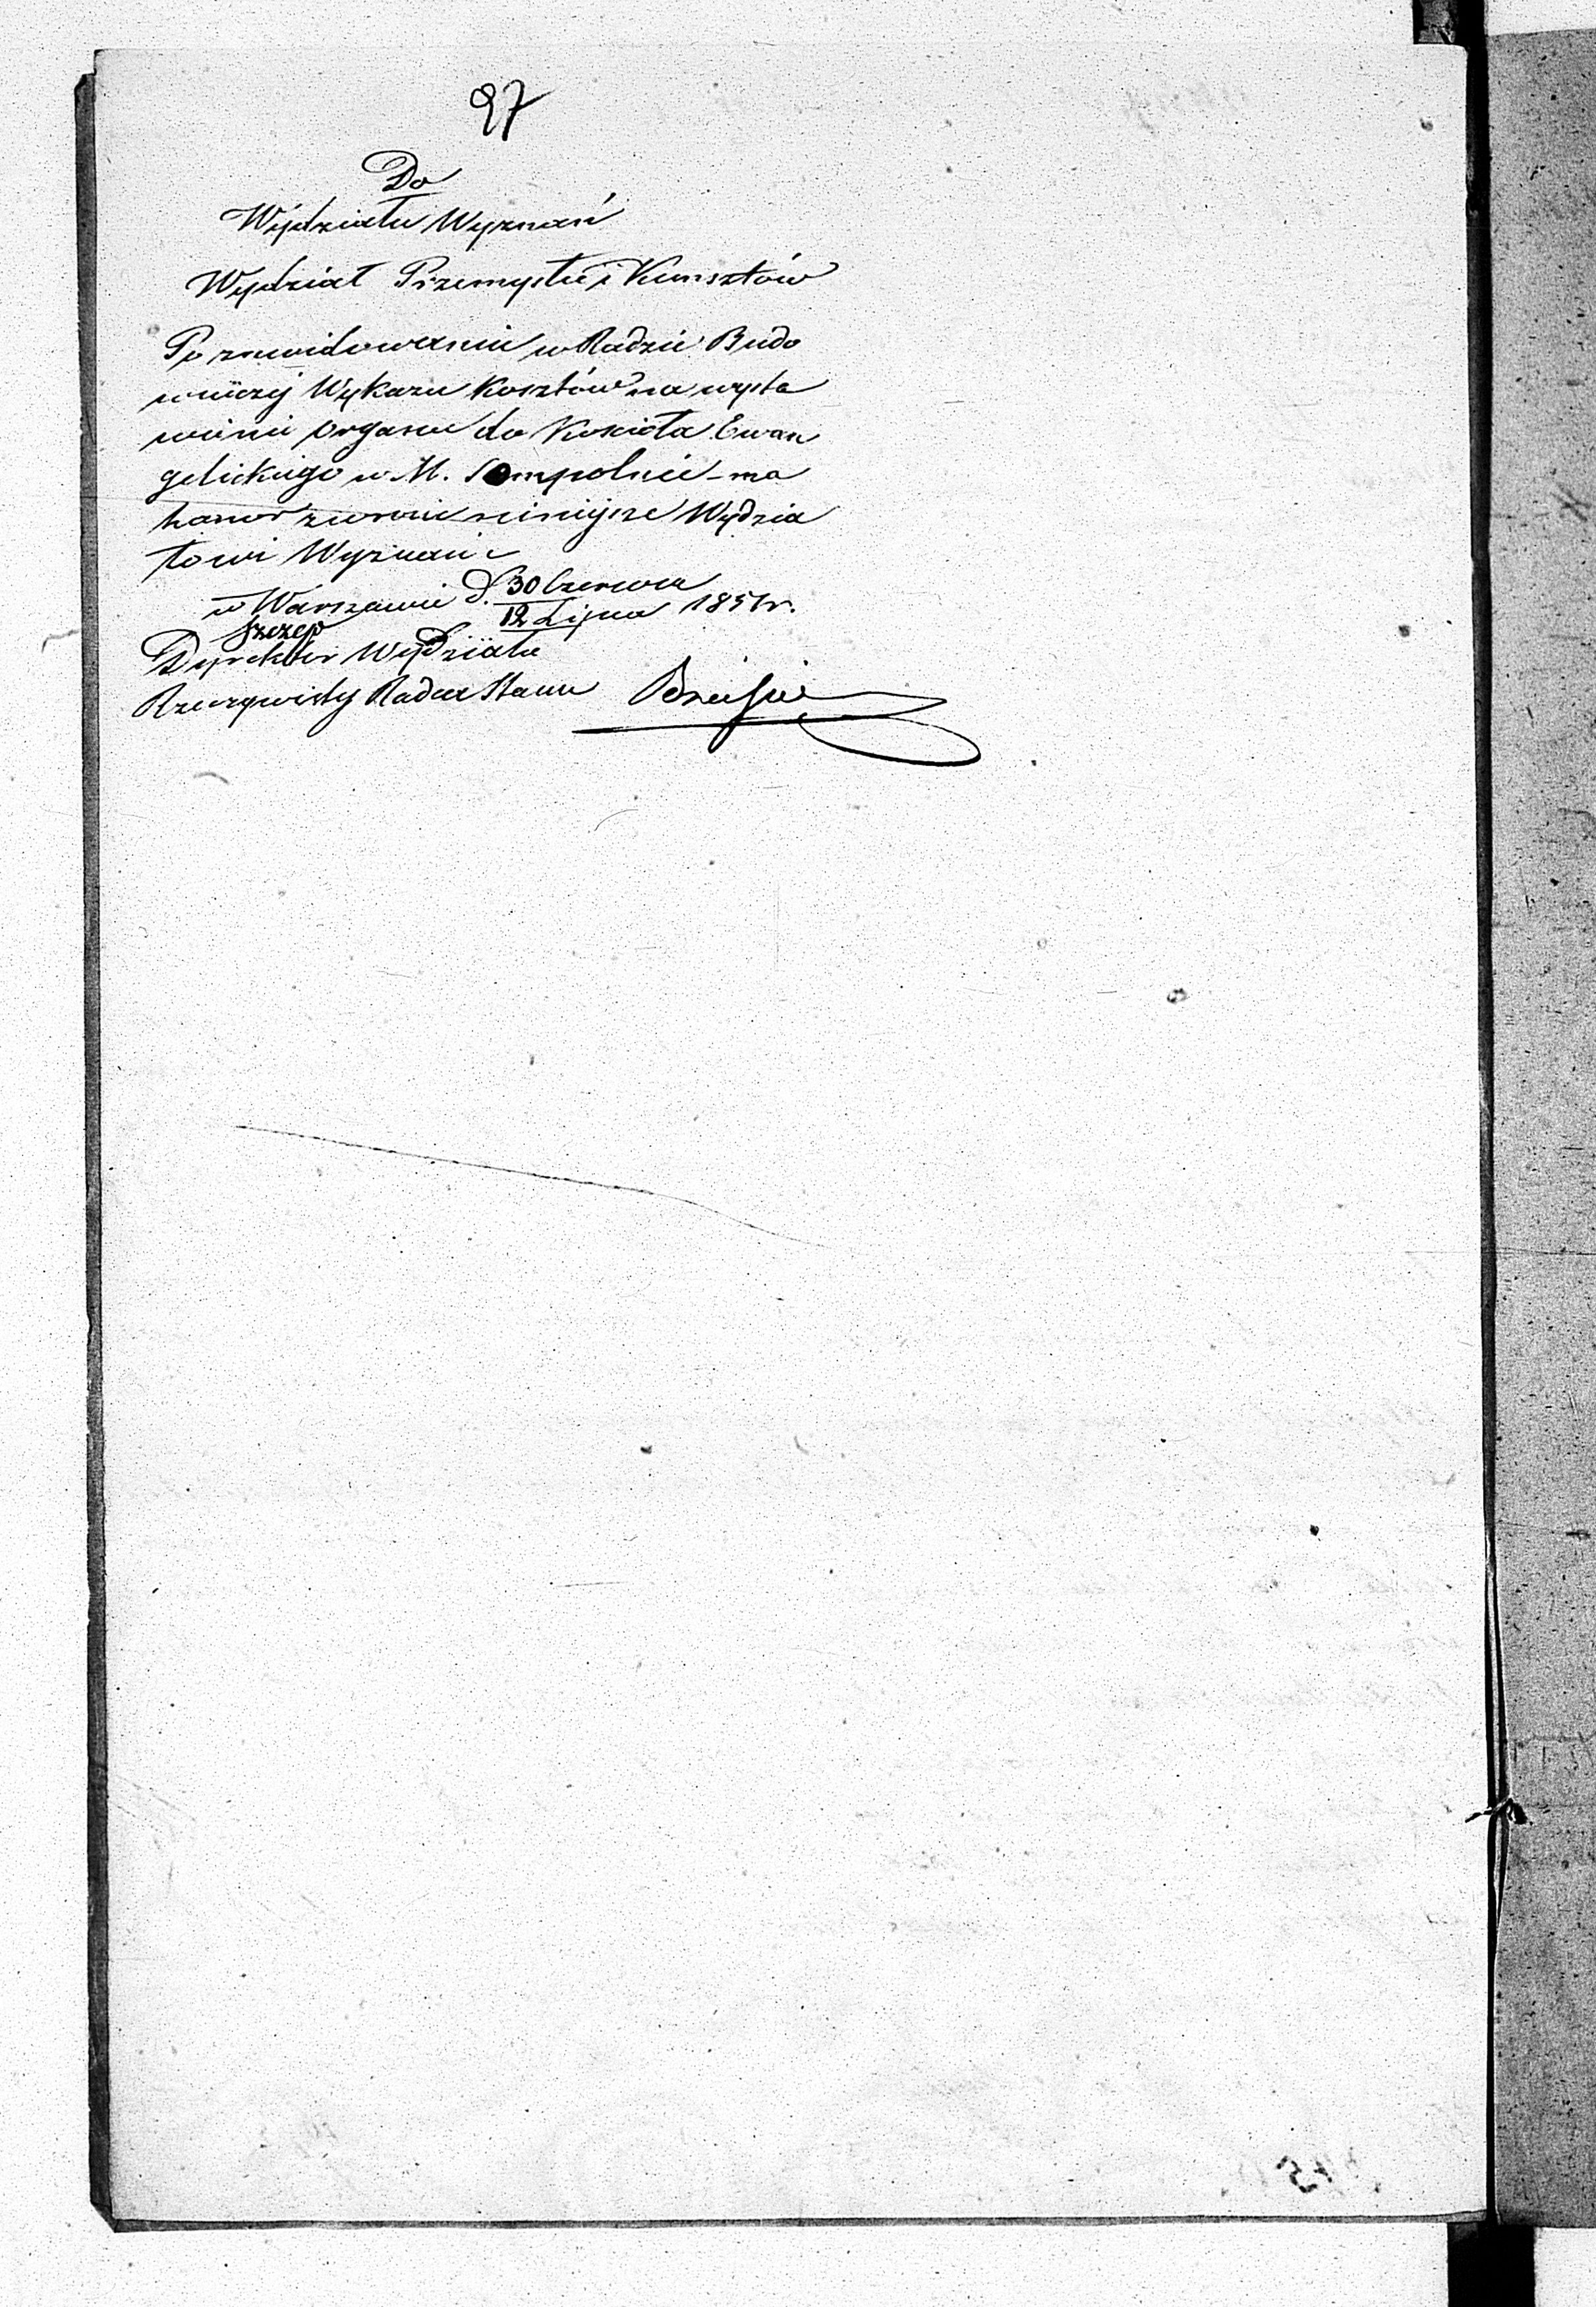 27
Do
Wydziału Wyznań
Wydział Przemysłu i Kunsztów
Po zrewidowaniu w Radzie Budo
wniczej Wykazu Kosztów na wysta
wienie organu do Kościoła Ewan
gelickiego w M. Sompolnie - ma
honor zwrócić niniejsze Wydzia
łowi Wyznań
w Warszawie d. 30 Czerwca
12 Lipca 1851 r.
Dyrektor Wydziału
Rzeczywisty Radca Stanu